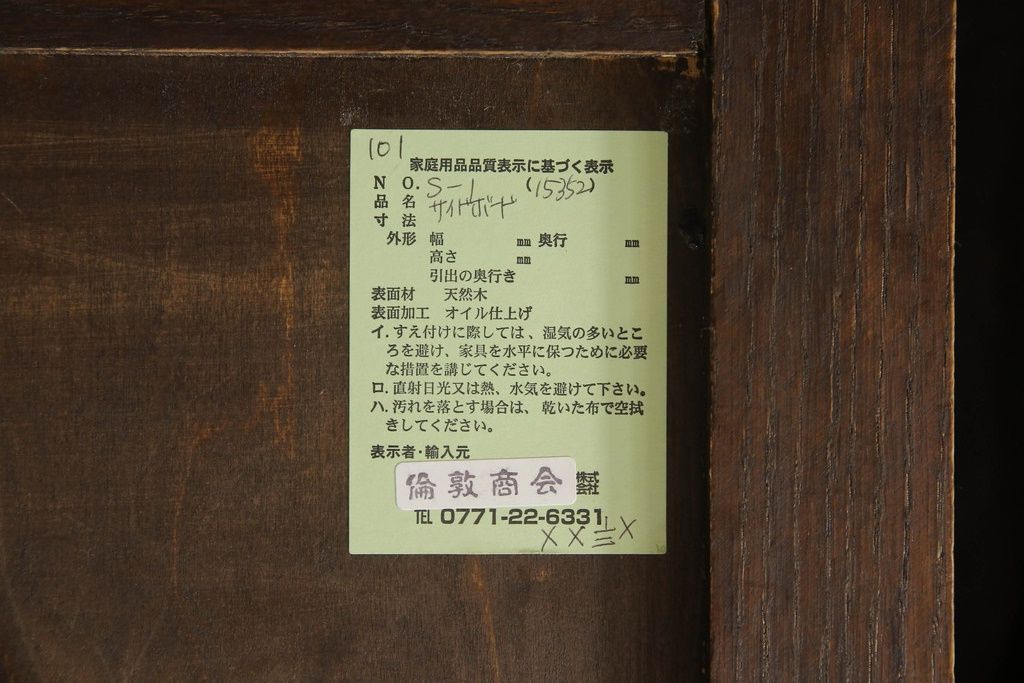 101
家庭用品品質表示に基づく表示
N O. S-1 (15352)
品 名 サイドボード
寸 法
外形 幅 ㎜ 奥行 ㎜
高さ ㎜
引出の奥行き ㎜
表面材 天然木
表面加工 オイル仕上げ
イ. すえ付けに際しては、湿気の多いとこ
ろを避け、家具を水平に保つために必要
な措置を講じてください。
ロ. 直射日光又は熱、水気を避けて下さい。
ハ. 汚れを落とす場合は、乾いた布で空拭
きしてください。
表示者・輸入元
倫敦商会 株式会社
TEL 0771-22-6331